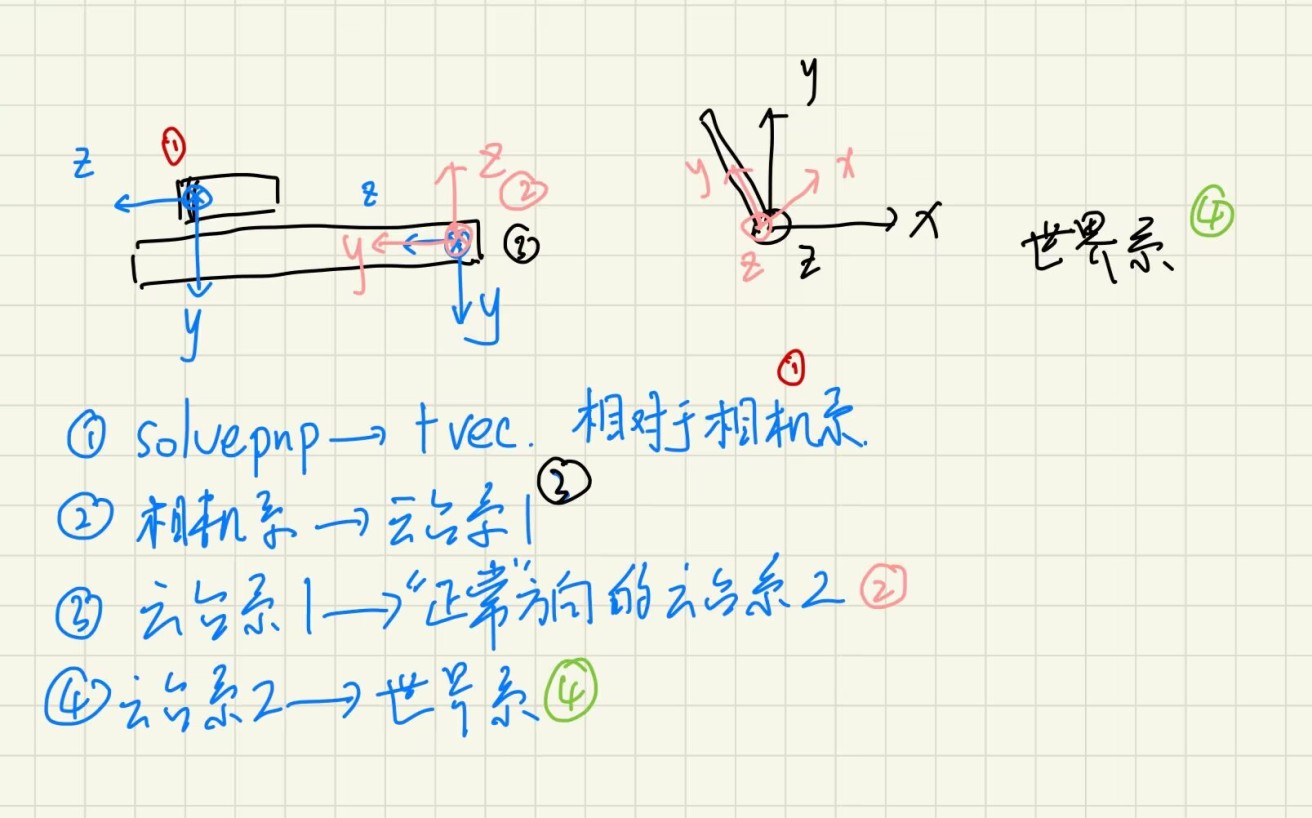 y
①
z
z
z
②
y
x
y
③
x
z
z
世界系 ④
y
y
①
① solvepnp → tvec. 相对于相机系.
② 相机系 → 云台系1 ③
③ 云台系1 → "正常"方向的云台系2 ②
④ 云台系2 → 世界系 ④